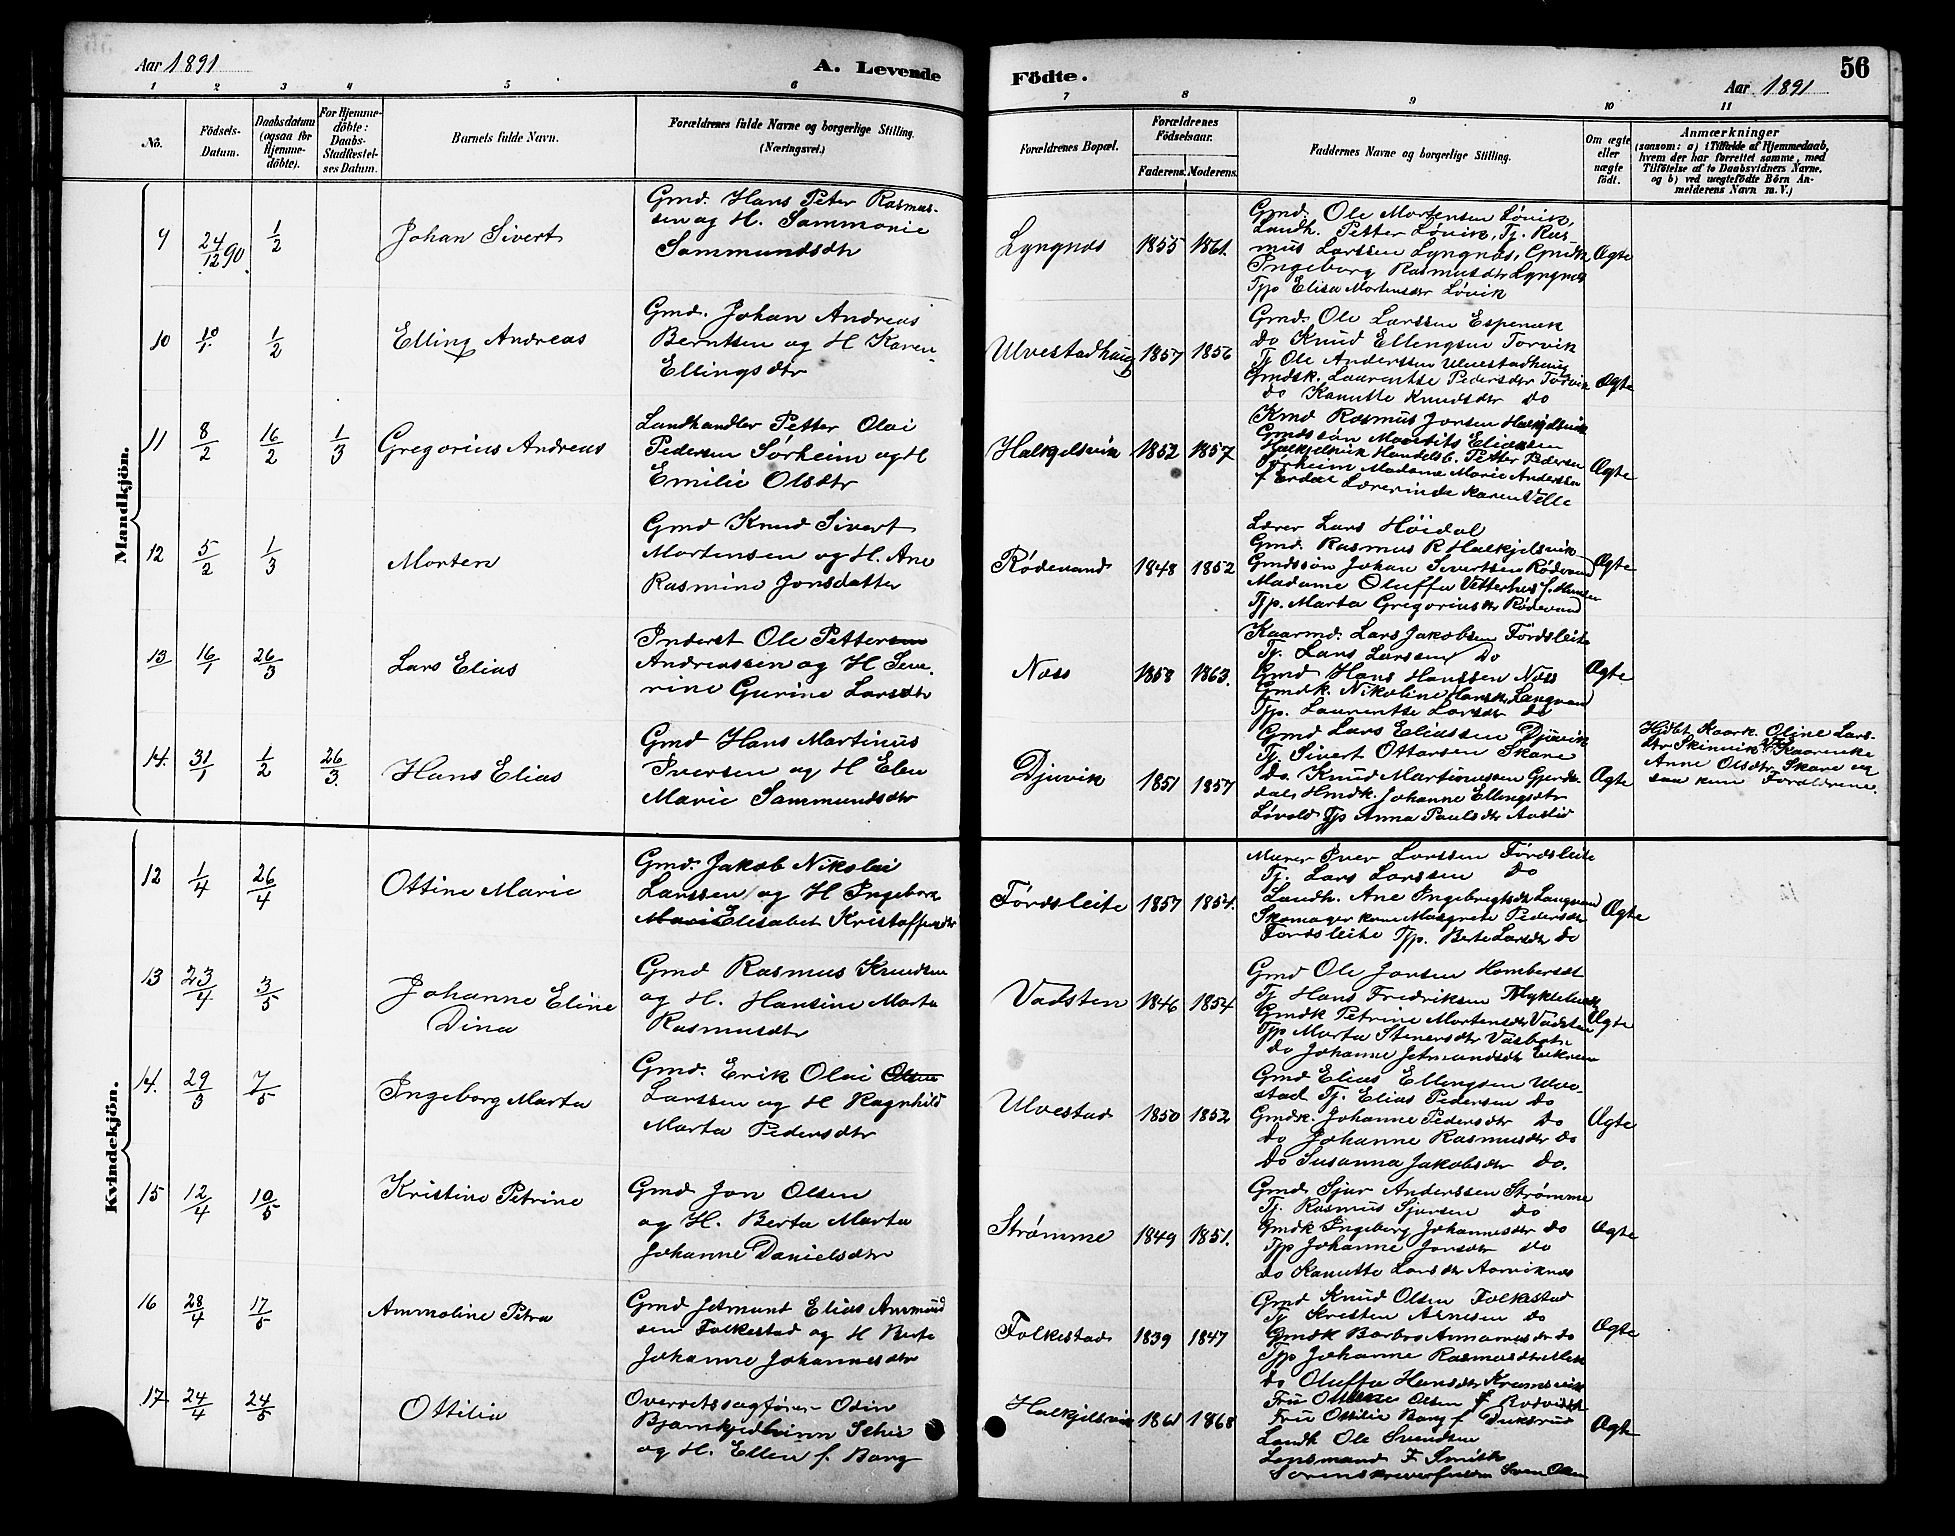 Aar 1891
A. Levende
1 2 3 4 5 6
No.
Födsels-
Datum.
Daabsdatum
(ogsaa for
Hjemme-
döbte).
For Hjemme-
döbte:
Daabs-
Stadfæstel-
ses Datum.
Barnets fulde Navn.
Forældrenes fulde Navne og borgerlige Stilling.
(Næringsvei.)
Födte.
56
Aar 1891
7 8 9 10 11
Forældrenes Bopæl.
Forældrenes
Födselsaar.
Faderens. Moderens.
Faddernes Navne og borgerlige Stilling.
Om ægte
eller
uægte
födt.
Anmærkninger
(saasom: a) i Tilfælde af Hjemmedaab,
hvem der har forrettet samme, med
Tilföielse af to Daabsvidners Navne,
og b) ved uægtefödte Börn An-
melderens Navn m. V.)
Mandkjön.
9 24/12 90. 1/2 Johan Sivert
Gmd. Hans Peter Rasmus-
sen og H. Sammonie
Sammundsdtr
Lyngnæs 1855 1861.
Gmd. Ole Mortensen Løvik,
Landh. Petter Løvik, Tj. Ras-
mus Larssen Lyngnæs, Gmdk
Ingeborg Rasmusdtr Lyngnæs
Tjp Elisa Mortensdtr Løvik
Ægte
10 10/1. 1/2 Elling Andreas
Gmd. Johan Andreas
Berntsen og H Karen
Ellingsdtr
Ulvestadhaug 1857 1856
Gmd. Ole Larssen Espenæk
do Knud Ellengsen Torvik
Tj Ole Anderssen Ulvestadhaug
Gmdsk. Laurentse Pedersdtr Torvik
do Kanutte Knudsdtr do
Ægte
11 8/2 16/2 1/3 Gregorius Andreas
Landhandler Petter Olai
Pedersen Sørheim og H
Emilie Olsdtr
Halkjelsvik 1852 1857
Kmd Rasmus Jonsen Halkjelsvik
Gmdssøn Mourits Eliassen
Halkjelsvik Handelsb. Petter Pedersen
Sørheim Madame Marie Anderssen
f Erdal Lærerinde Karen Velle
Ægte
12 5/2 1/3 Morten
Gmd Knud Sivert
Mortensen og H. Ane
Rasmine Jonsdatter
Rødevand 1848 1852
Lærer Lars Höidal
Gmd. Rasmus R Halkjelsvik
Gmdssøn Johan Sivertsen Rødevand
Madame Oluffa Vetterhus f. Hansen
Tjp. Marta Gregoriusdtr Rødevand
Ægte
13 16/1 26/3 Lars Elias
Inderst Ole Pettersen
Andreassen og H Seve-
rine Gurine Larsdtr
Næss 1858 1863.
Kaarmd. Lars Jakobsen Fördsleite
Tj. Lars Larssen Do
Gmd Hans Hanssen Næss
Gmdk. Nikoline Hansdtr Langvand
Tjp. Laurentse Larsdtr do
Ægte
14. 31/1 1/2 26/3. Hans Elias
Gmd Hans Martinus
Iversen og H Elen
Marie Sammundsdtr
Djuvik 1851 1857
Gmd Lars Eliassen Djuvik
Tj. Sivert Ottarsen Skare
Do. Knud Martinussen Gjerds-
dal, Hmdk. Johanne Ellingsdtr
Løvold Tjp Anna Paulsdtr Aaslid
Ægte
Hjdbt Kaark. Oline Lars-
dtr Skinvik. Kaarenke
Anne Olsdtr Skare og
saa kun Forældrene.
Kvindekjön.
12 1/4 26/4 Ottine Marie
Gmd. Jakob Nikolai
Larssen og H Ingeborg
Marie Elisabet Kristoffersdtr
Fördsleite 1857 1854.
Murer Iver Larssen Fördsleite
Tj. Lars Larssen Do
Landh. Ane Ingebregtsdtr Langvand
Skomager kone Margrete Pedersdtr
Fordsleite Tjp. Berte Larsdtr do
Ægte
13 23/4 3/5 Johanne Eline
Dina
Gmd Rasmus Knudsen
og H. Hansine Marta
Rasmusdtr
Vadsten 1846 1854.
Gmd Ole Jonsen Hambersæt
Tj Hans Fredriksen Myklebust
Gmdk Petrine Mortensdtr Vadsten
Tjp Marta Stenersdtr Vasbotn
do Johanne Jetmundsdtr Eikrem
Ægte
14. 29/3 7/5 Ingeborg Marta
Gmd. Erik Olai Olsen
Larssen og H Ragnhild
Marta Pedersdtr
Ulvestad 1850 1852
Gmd Elias Ellingsen Ulve-
stad Tj. Elias Pedersen do
Gmdk. Johanne Pedersdtr do
do Johanne Rasmusdtr do
Do Susanna Jakobsdtr do.
Ægte
15 12/4 10/5 Kristine Petrine
Gmd Jon Olsen
og H. Berta Marta
Johanne Danielsdtr
Strømme 1849 1851.
Gmd. Sjur Anderssen Strømme
Tj. Rasmus Sjursen do
Gmdk Ingeborg Johannesdtr do
Tjp Johanne Jonsdtr do
do Kanutte Larsdtr Aarviknæs
Ægte
16 28/4 17/5 Ammoline Petra
Gmd Jetmunt Elias Ammund
sen Folkestad og H Berte
Johanne Johannesdtr
Folkestad 1839 1847
Gmd Knud Olsen Folkestad
Tj Kristen Arnesen do
Gmdk Barbro Ammamisdtr do
Tjp Johanne Rasmusdtr
do Oluffa Hansdtr
Ægte
17 24/4 24/5 Ottilia
Overretssagfører Odin
Bjarnhjedhinn Schie
og H. Ellen f. Bang
Halkjelsvik 1861 1868
Fru Olsen f.
Fru Ottilie Bang f.
Landh Ole Svendsen
Lensmand F Smith
Sorenskriverfuldm Sven Olsen
Ægte